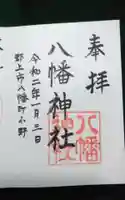 奉拝
八幡神社
八幡
神社
令和二年一月三日
郡上市八幡町小野